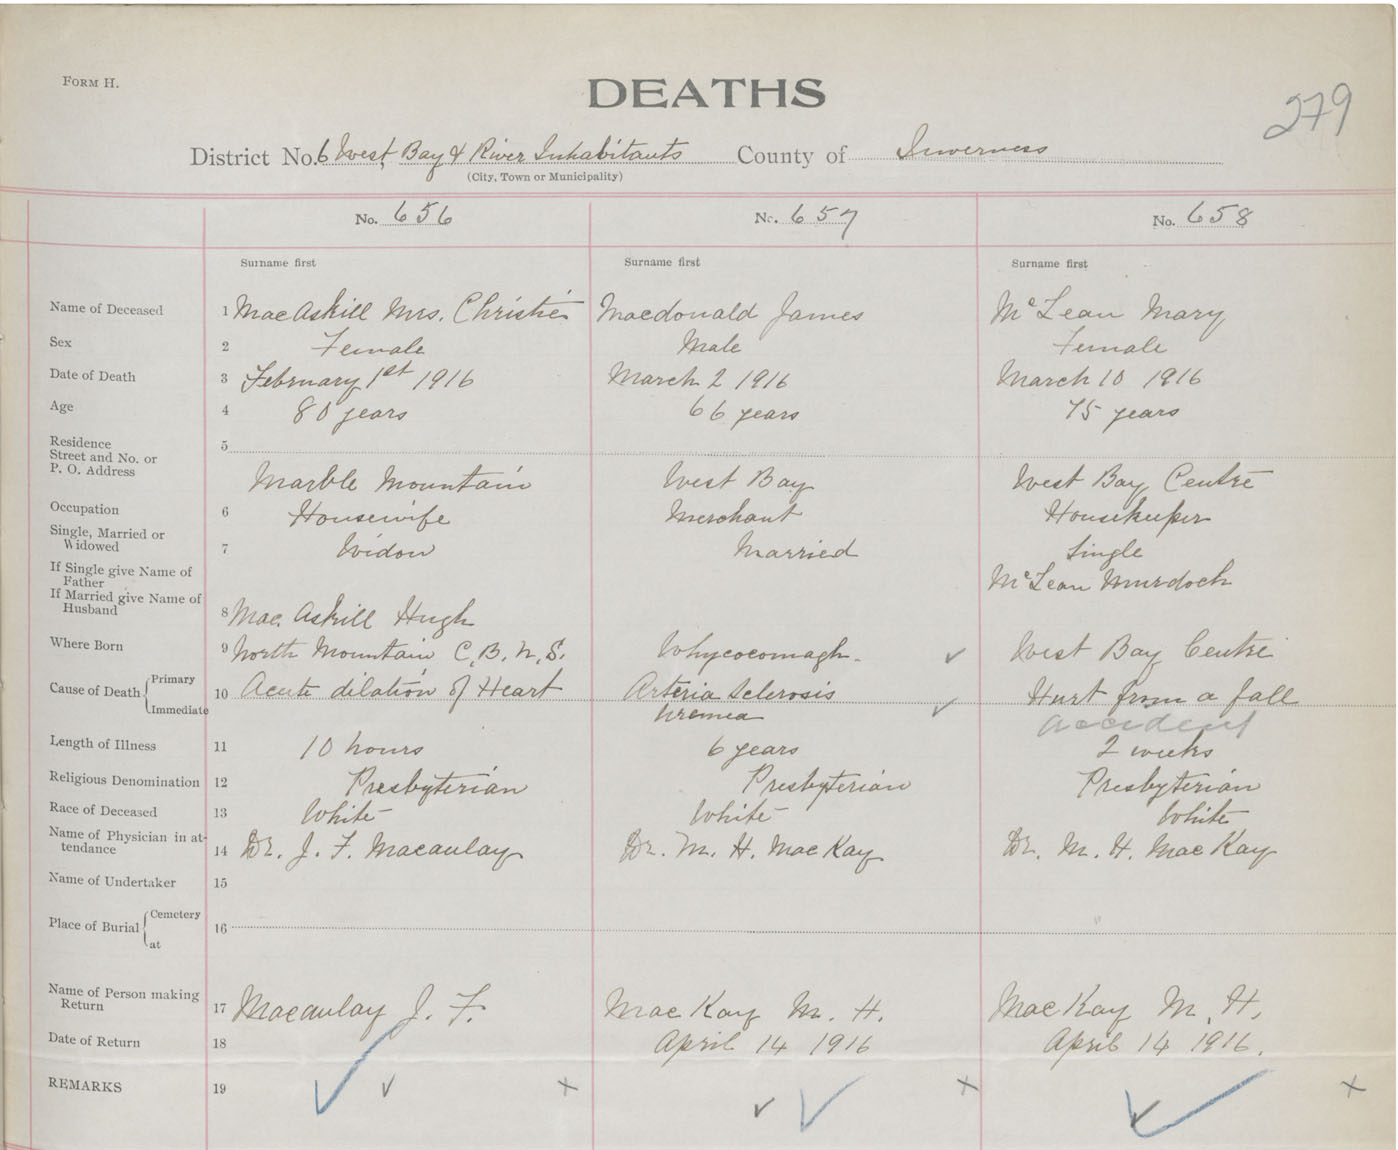 FORM H.
DEATHS
279
District No. 6 West Bay & River Inhabitants County of Inverness
(City, Town or Municipality)
No. 656 No. 657 No. 658
Surname first Surname first Surname first
Name of Deceased 1 MacAskill Mrs. Christie Macdonald James McLean Mary
Sex 2 Female Male Female
Date of Death 3 February 1st 1916 March 2 1916 March 10 1916
Age 4 80 years 66 years 75 years
Residence 5
Street and No. or
P. O. Address
Marble Mountain West Bay West Bay Centre
Occupation 6 Housewife Merchant Housekeeper
Single, Married or
Widowed 7 Widow Married Single
If Single give Name of
Father McLean Murdoch
If Married give Name of
Husband 8 Mac Askill Hugh
Where Born 9 North Mountain C.B. N.S. Whycocomagh West Bay Centre
Cause of Death Primary 10 Acute dilation of Heart Arteria Sclerosis Hurt from a fall
Immediate Uremea accident
Length of Illness 11 10 hours 6 years 2 weeks
Religious Denomination 12 Presbyterian Presbyterian Presbyterian
Race of Deceased 13 White White White
Name of Physician in at-
tendance 14 Dr. J. F. Macaulay Dr. M. H. MacKay Dr. M. H. MacKay
Name of Undertaker 15
Place of Burial Cemetery 16
at
Name of Person making
Return 17 Macaulay J. F. MacKay M. H. MacKay M. H.
Date of Return 18 April 14 1916 April 14 1916.
REMARKS 19